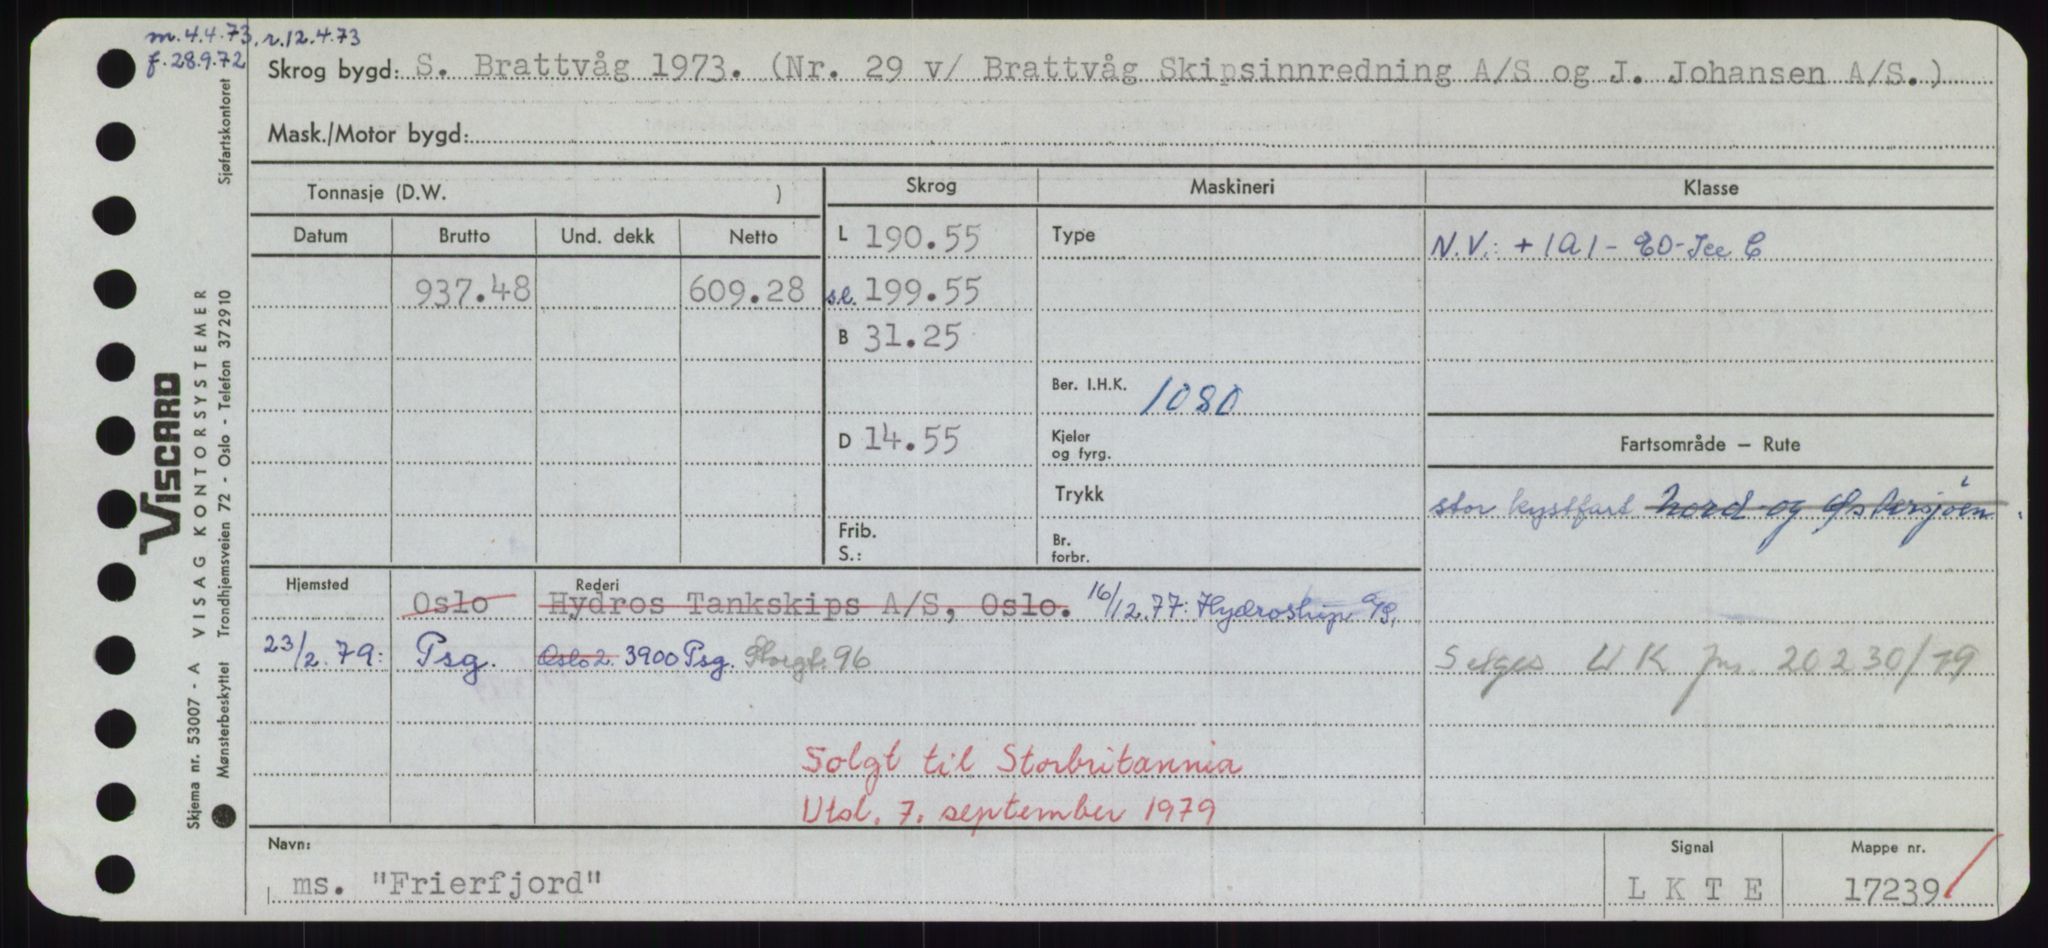 m. 4.4.73, r. 12.4.73
f. 28.9.72
Skrog bygd: S. Brattvåg 1973. (Nr. 29 v/ Brattvåg Skipsinnredning A/S og J. Johansen A/S.)
Mask./Motor bygd:
Tonnasje (D.W. ) Skrog Maskineri Klasse
Datum Brutto Und. dekk Netto L 190.55 Type N.V.: + 1A1 - EO - Ice C
937.48 609.28 s.l. 199.55
B 31.25
Ber. I.H.K. 1080
D 14.55 Kjeler og fyrg. Fartsområde – Rute
Trykk stor kystfart Nord- og Østersjøen.
Frib. S.: Br. forbr.
Hjemsted Rederi
Oslo Hydros Tankskips A/S, Oslo. 16/12.77: Hydroship A/S,
23/2.79: Psg. Oslo 2. 3900 Psg. Storgt. 96 Selges UK jnr. 20230/79
Solgt til Storbritannia
Utsl. 7. september 1979
Navn: Signal Mappe nr.
ms. "Frierfjord" L K T E 17239
VISCARD
Skjema nr. 53007 - A VISAG KONTORSYSTEMER
Mønsterbeskyttet Trondhjemsveien 72 - Oslo - Telefon 372910 Sjøfartskontoret